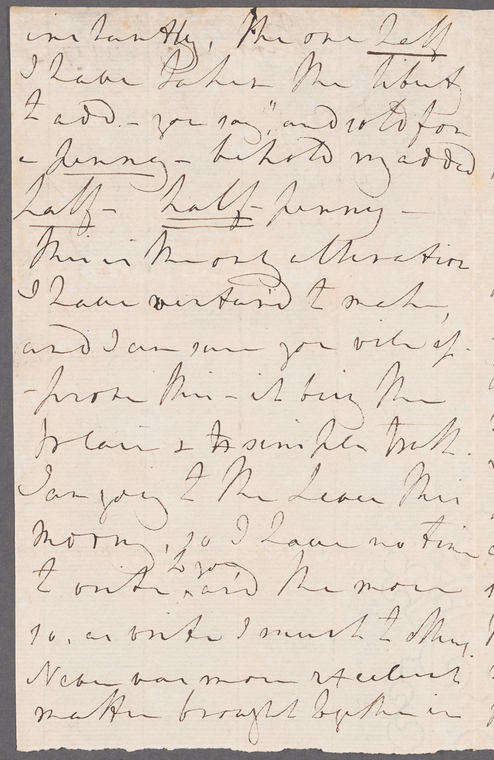 instantly, the one half
I have taken the liberty
to add – you say, "and sold for
a penny – behold my added
half – half-penny –
this is the only alteration
I have ventured to make,
and I am sure you will ap-
-prove this – it being the
plain & the simple truth.
I am going to the Levee this
morng, so I have no time
to write to you, and the more
so, as write I must to others.
Never was more excellent
matter brought together in